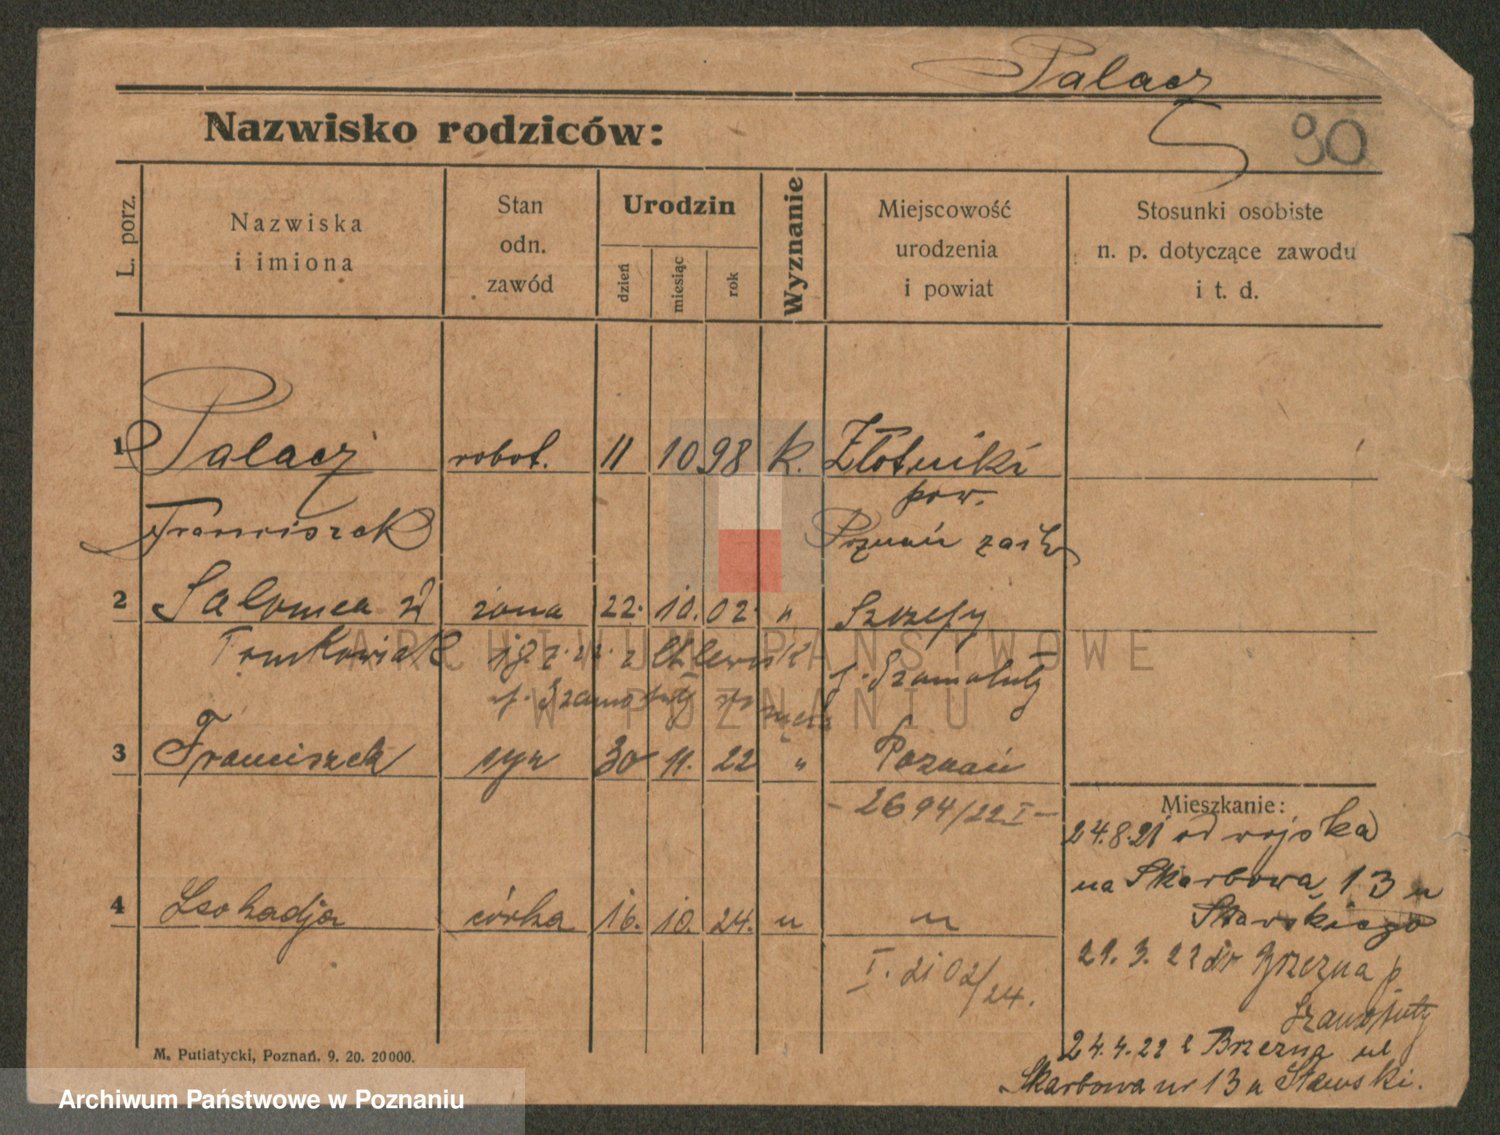 Palacz
Nazwisko rodziców:
90
L. porz.
Nazwiska
i imiona
Stan
odn.
zawód
Urodzin
dzień
miesiąc
rok
Wyznanie
Miejscowość
urodzenia
i powiat
Stosunki osobiste
n. p. dotyczące zawodu
i t. d.
1 Palacz robot. 11 10 98 k. Złotniki
pow.
Franciszek Poznań zach
2 Salomea żona 22. 10. 02. " Szczepy
Tomkowiak p. Szamotuły
p. Szamotuły
ARCHIWUM PAŃSTWOWE
W POZNANIU
3 Franciszek syn 30 11. 22 " Poznań
- 2694/22 I -
Mieszkanie:
24.8.21 od wojska
na Skarbowa 13 u
Stawskiego
4 Leokadja córka 16. 10. 24. " "
I. 2102/24.
29. 3. 22 Brzezna p
Szamotuły
24.4.22 z Brzezna ul
Skarbowa nr 13 u Stawski.
M. Putiatycki, Poznań. 9. 20. 20000.
Archiwum Państwowe w Poznaniu